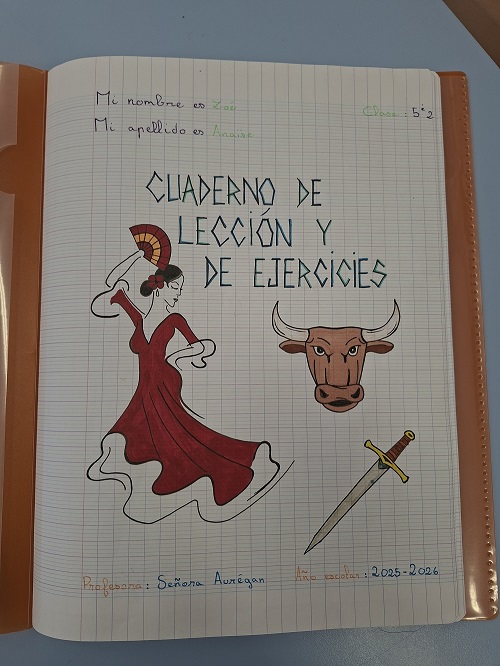 Mi nombre es Zoé
Clase : 5°2
Mi apellido es
CUADERNO DE
LECCIÓN Y
DE EJERCICIES
Profesora : Señora Aurégan
Año escolar : 2025-2026